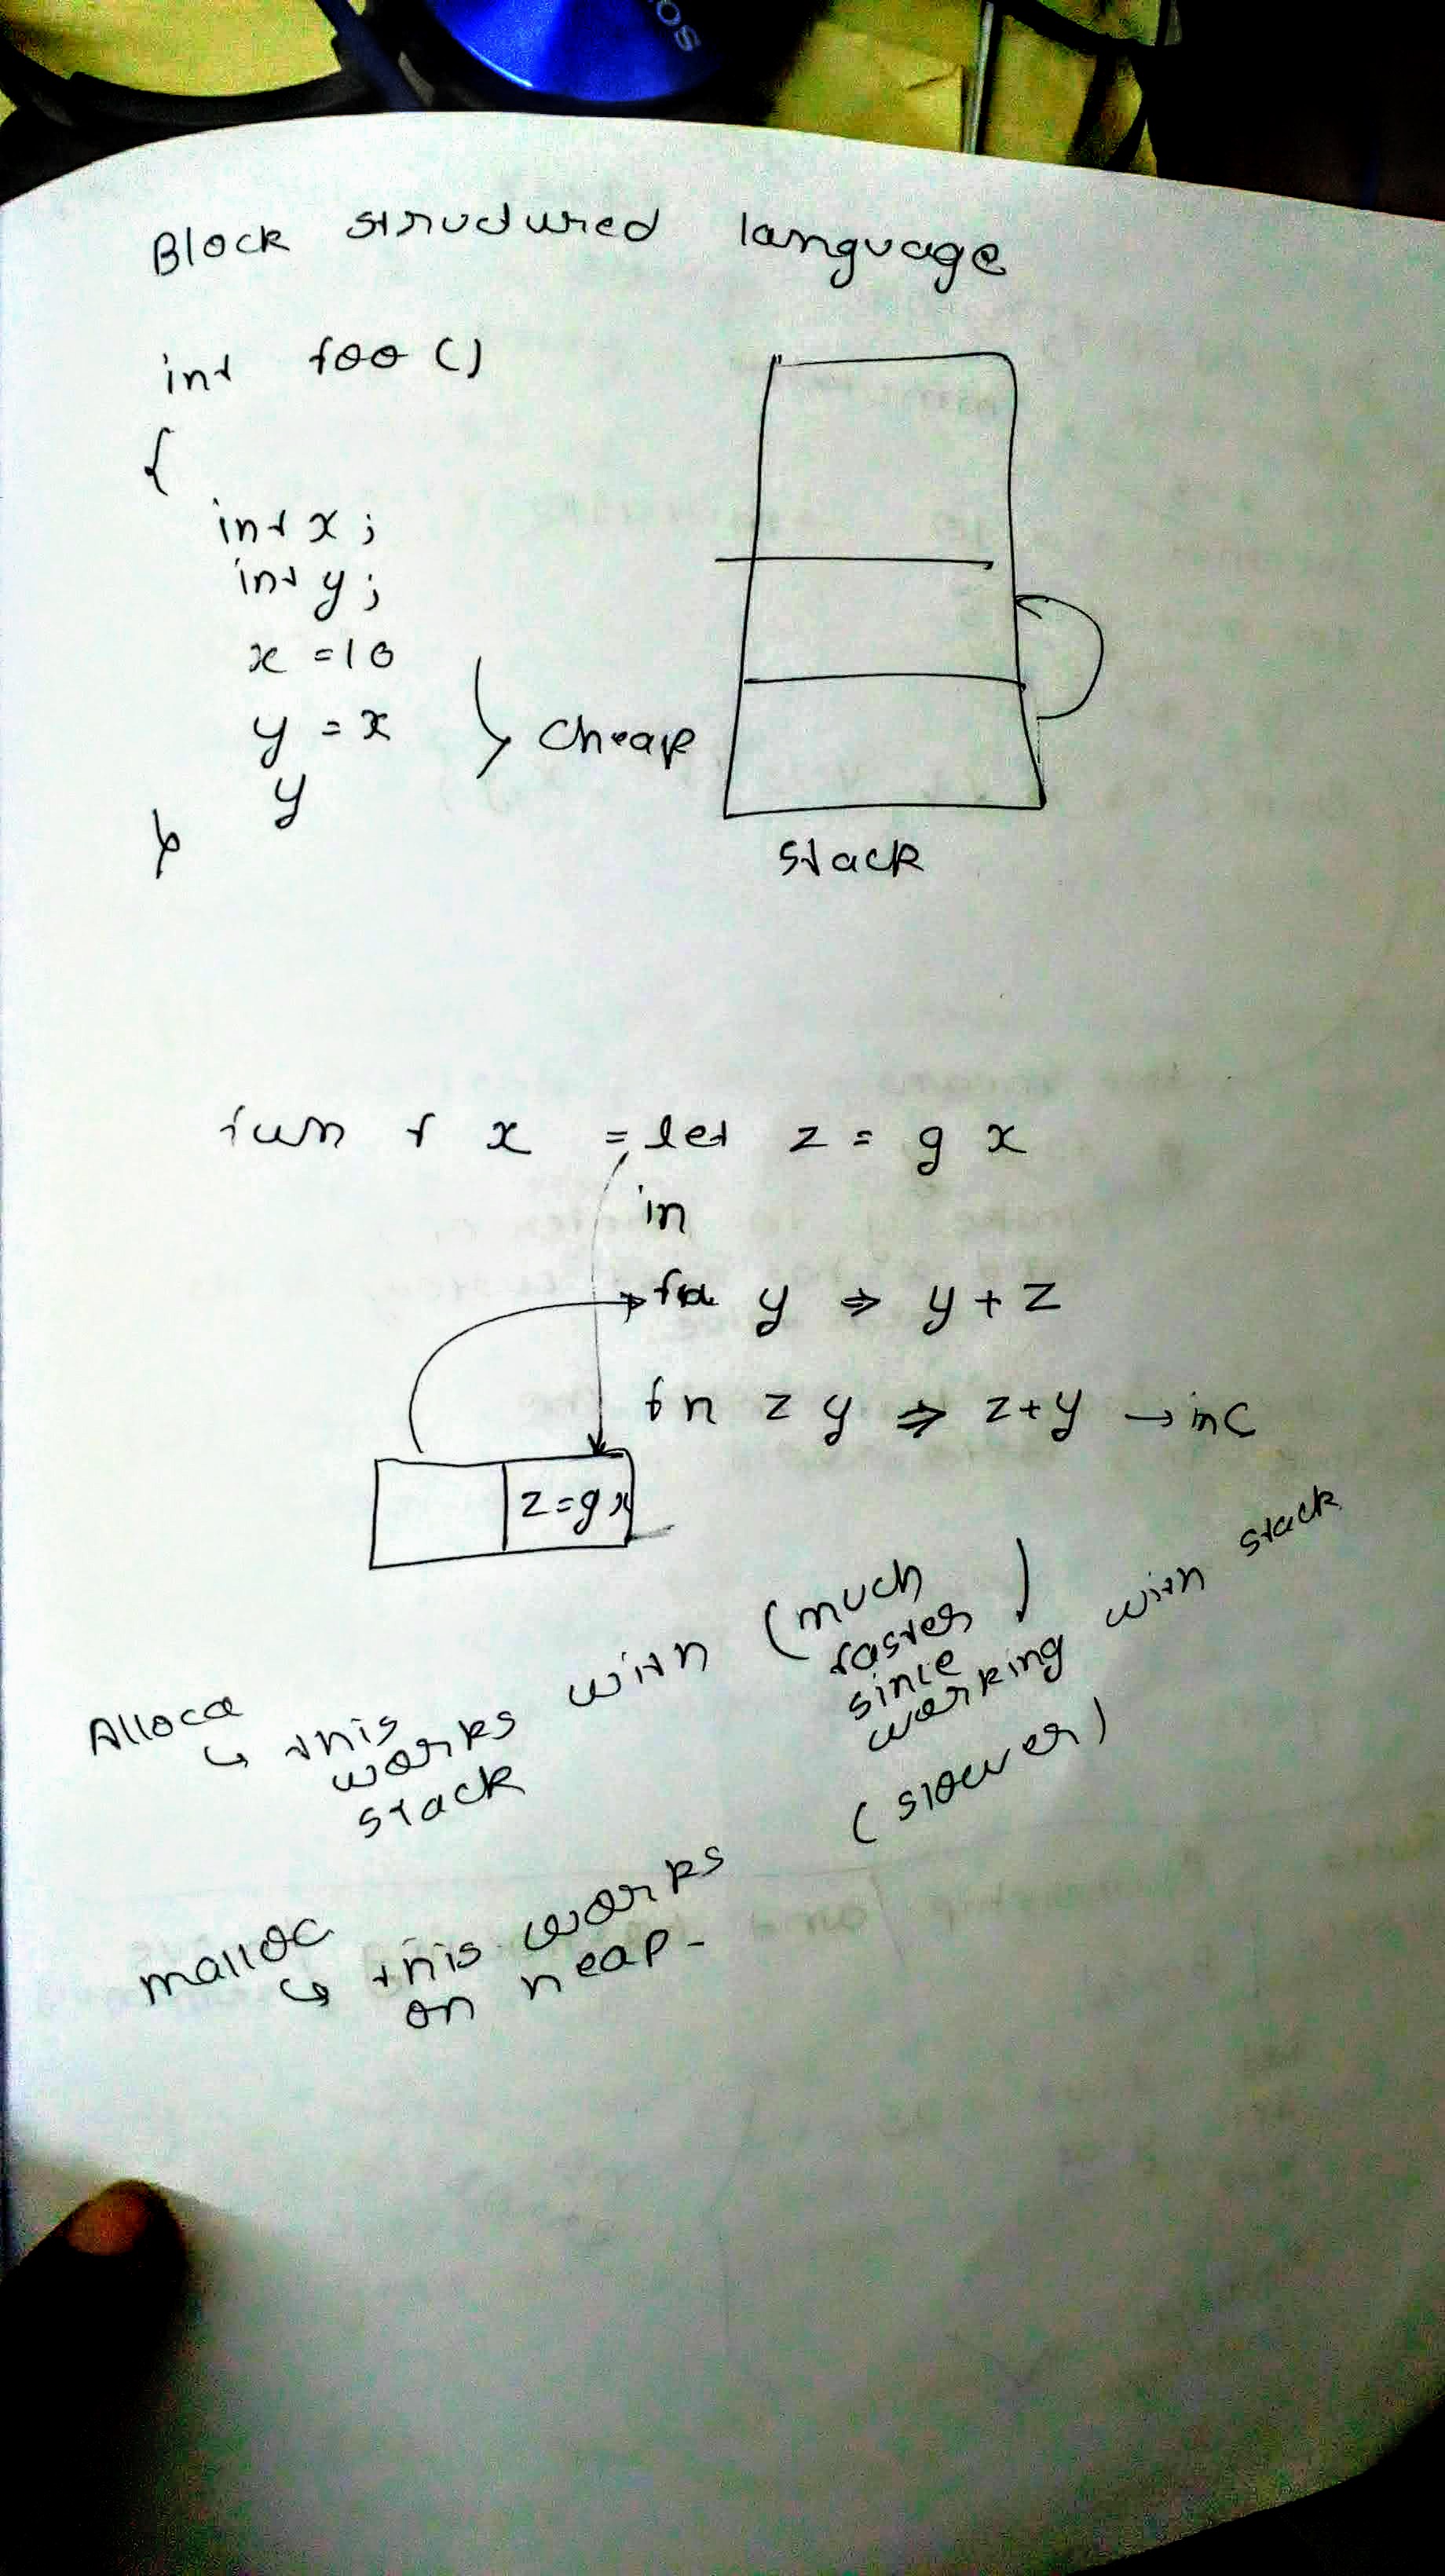 SO
Block structured language
int foo ()
{
int x ;
int y ;
x = 10
y = x
cheap
y
}
stack
fun f x = let z = g x
in
fn y ⇒ y + z
fn z y ⇒ z + y → in C
z = g x
Alloca
↳ this works with stack
(much faster since working with stack)
malloc
↳ this works on heap -
(slower)